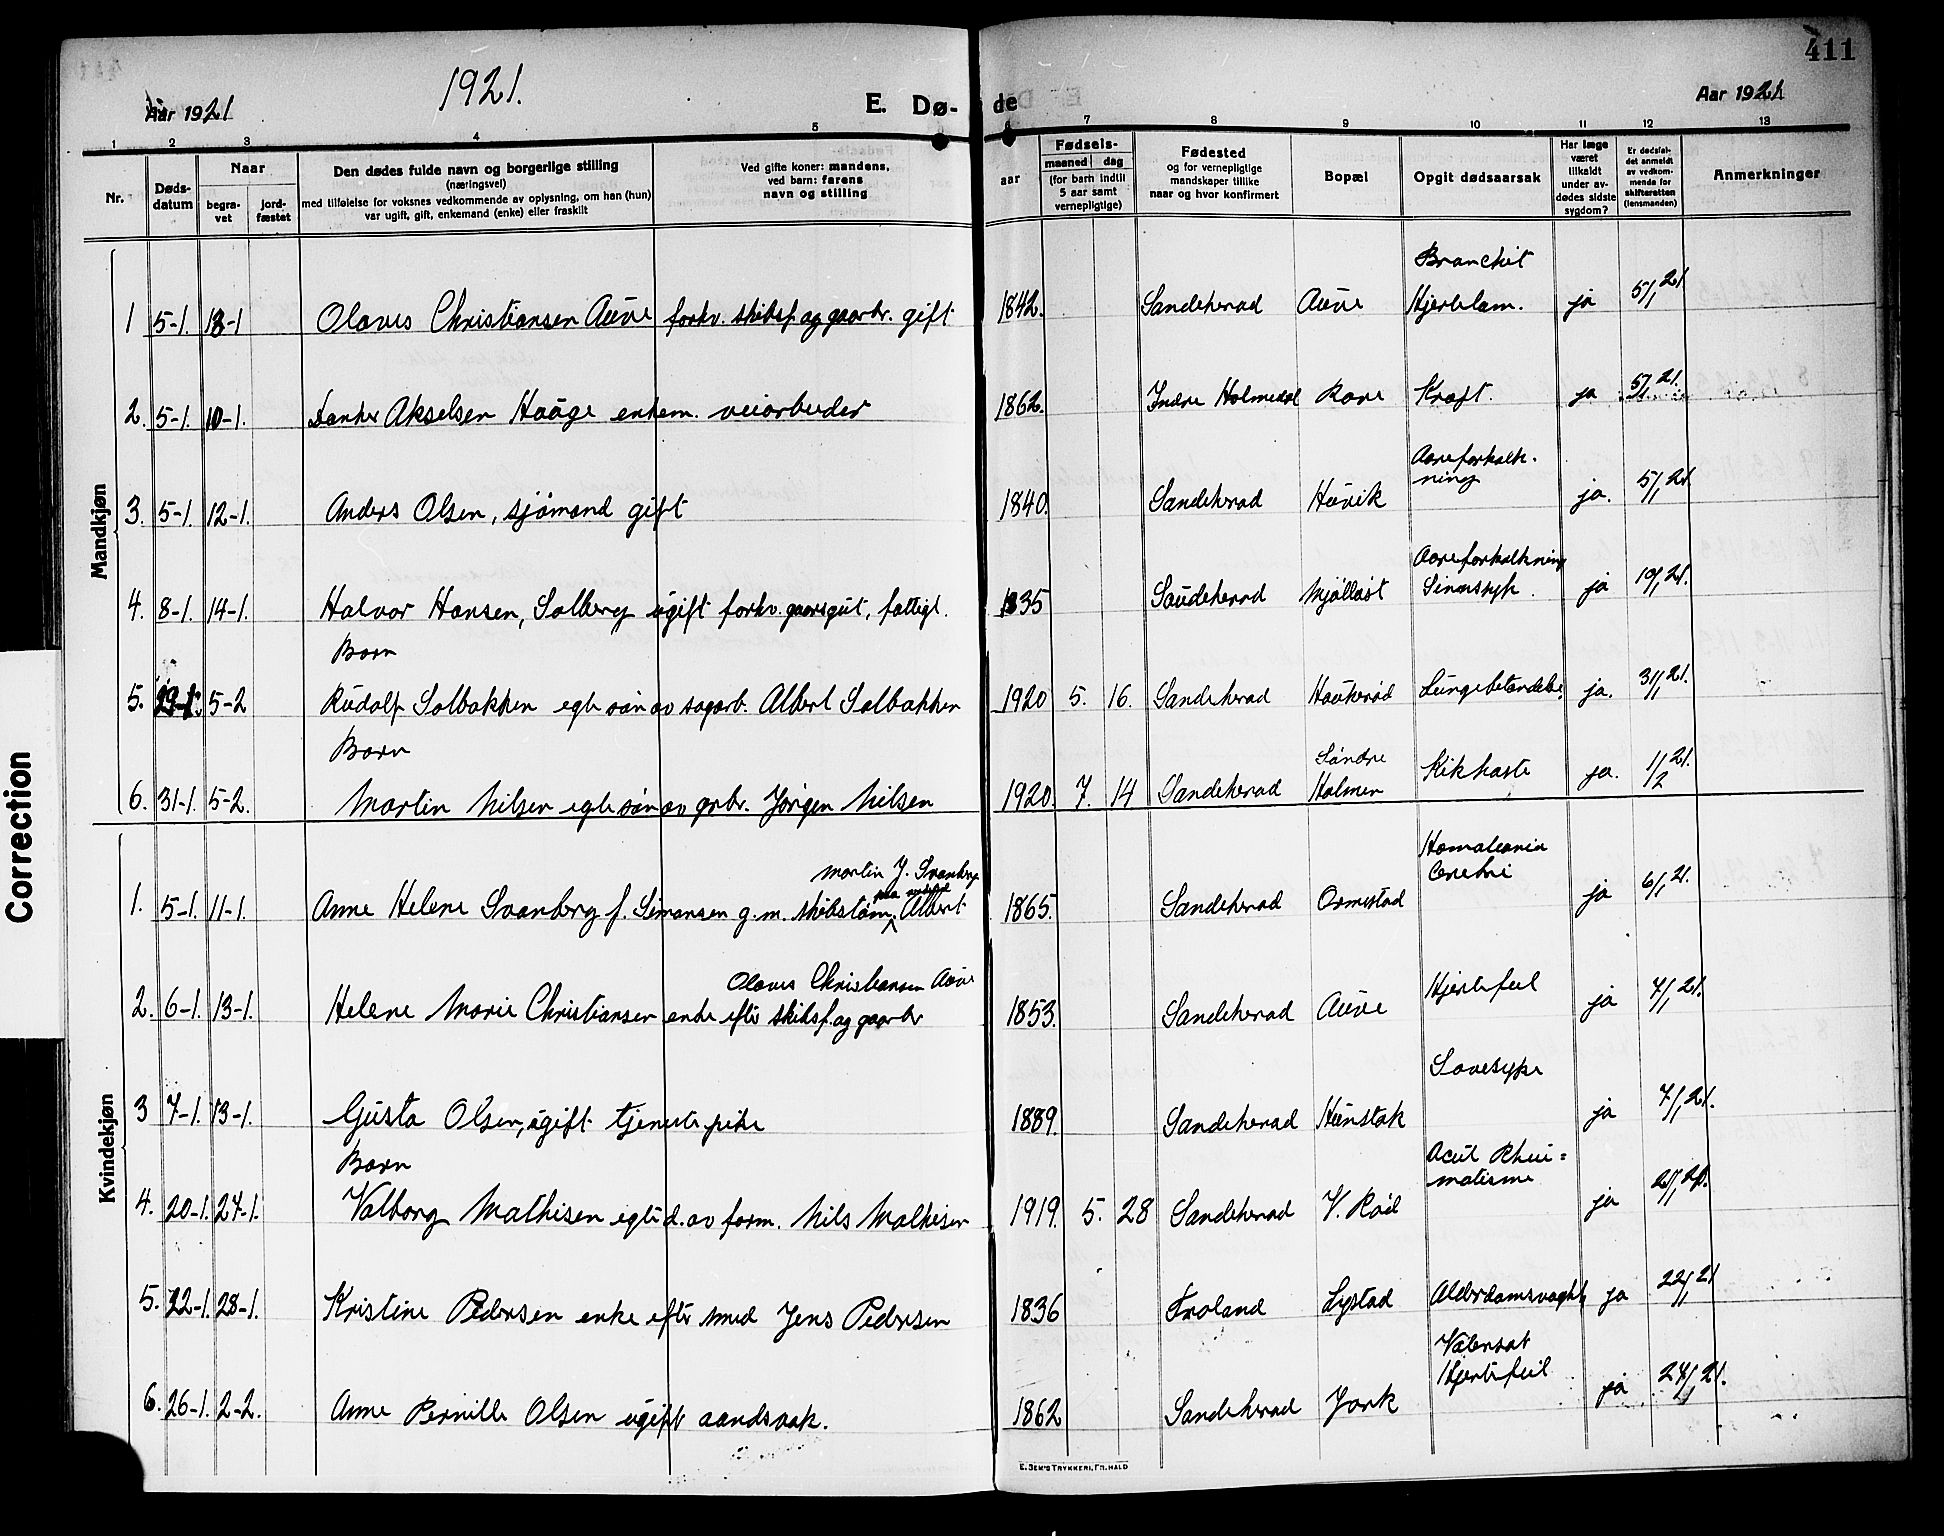 411
1921.
Aar 1921
E. Dø-
de
Aar 1921
1 2 3 4 5 6 7 8 9 10 11 12 13
Nr.
Døds-
datum
Naar
begra-
vet
jord-
fæstet
Den dødes fulde navn og borgerlige stilling
(næringsvei)
med tilføielse for voksnes vedkommende av oplysning, om han (hun)
var ugift, gift, enkemand (enke) eller fraskilt
Ved gifte koner: mandens,
ved barn: farens
navn og stilling
aar
Fødsels-
maaned dag
(for barn indtil
5 aar samt
vernepligtige)
Fødested
og for vernepligtige
mandskaper tillike
naar og hvor konfirmert
Bopæl
Opgit dødsaarsak
Har læge
været
tilkaldt
under av-
dødes sidste
sygdom?
Er dødsfal-
det anmeldt
av vedkom-
mende for
skifteretten
(lensmanden)
Anmerkninger
Mandkjøn
Branchit
1 5-1. 13-1 Olaves Christiansen Auve forhv. skibsf. og gaarbr. gift 1842. Sandeherad Auve Hjertelam. ja 5/1 21
2. 5-1. 10-1. Akselsen Haage enkem. veiarbeider 1862. Indre Holmedal Rave Kræft. ja 5/1 21.
Aareforkalk-
ning
3. 5-1. 12-1. Anders Olsen, sjømand gift 1840. Sandeherad Huvik ja. 5/1 21.
Aareforkalkning
4. 8-1. 14-1. Halvor Hansen, Solberg ugift forhv. gaarsgut, fattigl. 1835 Sandeherad Mjølløst Sinnsyk. ja 10/1 21.
Barn
5. 29-1. 5-2 Rudolf Solbakken egte søn av sagarb. Albert Solbakken 1920 5. 16. Sandeherad Haukerød Lungebetændelse. ja. 31/1 21.
Barn
Søndre
6. 31-1. 5-2. Martin Nilsen egte søn av grbr. Jørgen Nilsen 1920. 7. 14 Sandeherad Holmen Kikhoste ja. 1/2 21.
Kvindekjøn
Martin J. Svanberg
Cerebri
1. 5-1. 11-1. Anne Helene Svanberg f. Simonsen g. m. skibstøm. Albert 1865. Sandeherad Ormestad ja 6/1 21.
Olaves Christiansen Auve
2. 6-1. 13-1. Helene Marie Christiansen enke efter skibsf. og gaarbr 1853. Sandeherad Auve Hjertefeil ja 7/1 21.
Sovesyke
3 7-1. 13-1. Gusta Olsen, ugift tjenestepike 1889. Sandeherad Hunstok ja 7/1 21.
Barn
Acut Rheu=
matisme
4. 20-1. 27-1. Valborg Mathisen egte d. av form. Nils Mathisen 1919. 5. 28 Sandeherad V. Rød ja 21.
5. 22-1. 28-1. Kristine Pedersen enke efter smed Jens Pedersen 1836 Froland Lystad Alderdomsvaghh ja 22/1 21
Vatersot
Hjertefeil
6. 26-1. 2-2. Anne Pernille Olsen ugift aandsvak. 1862 Sandeherad York ja 27/1 21.
E. SEM'S TRYKKERI, FR.HALD
Correction